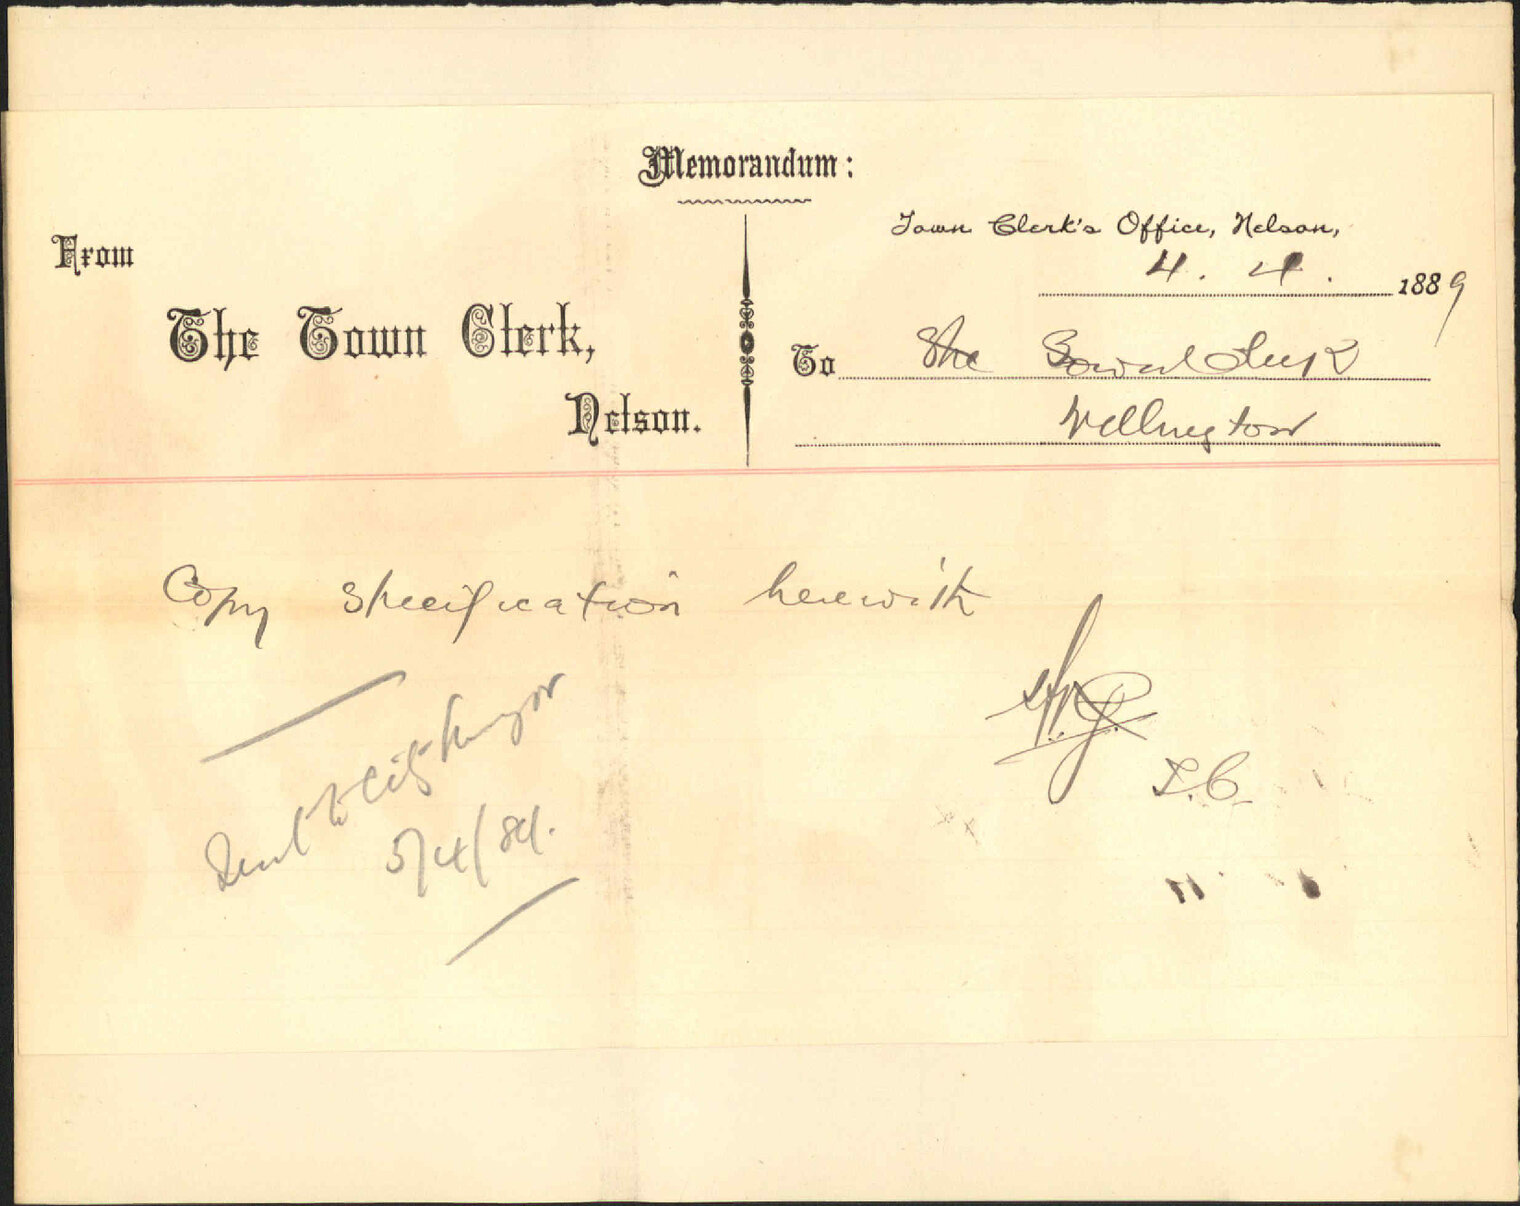 Memorandum:
From
The Town Clerk,
Nelson.
Town Clerk's Office, Nelson,
4. 4. 1889
To The Town Clerk
Wellington
Copy specification herewith
T.C.
Sent to City Surveyor
5/4/89.